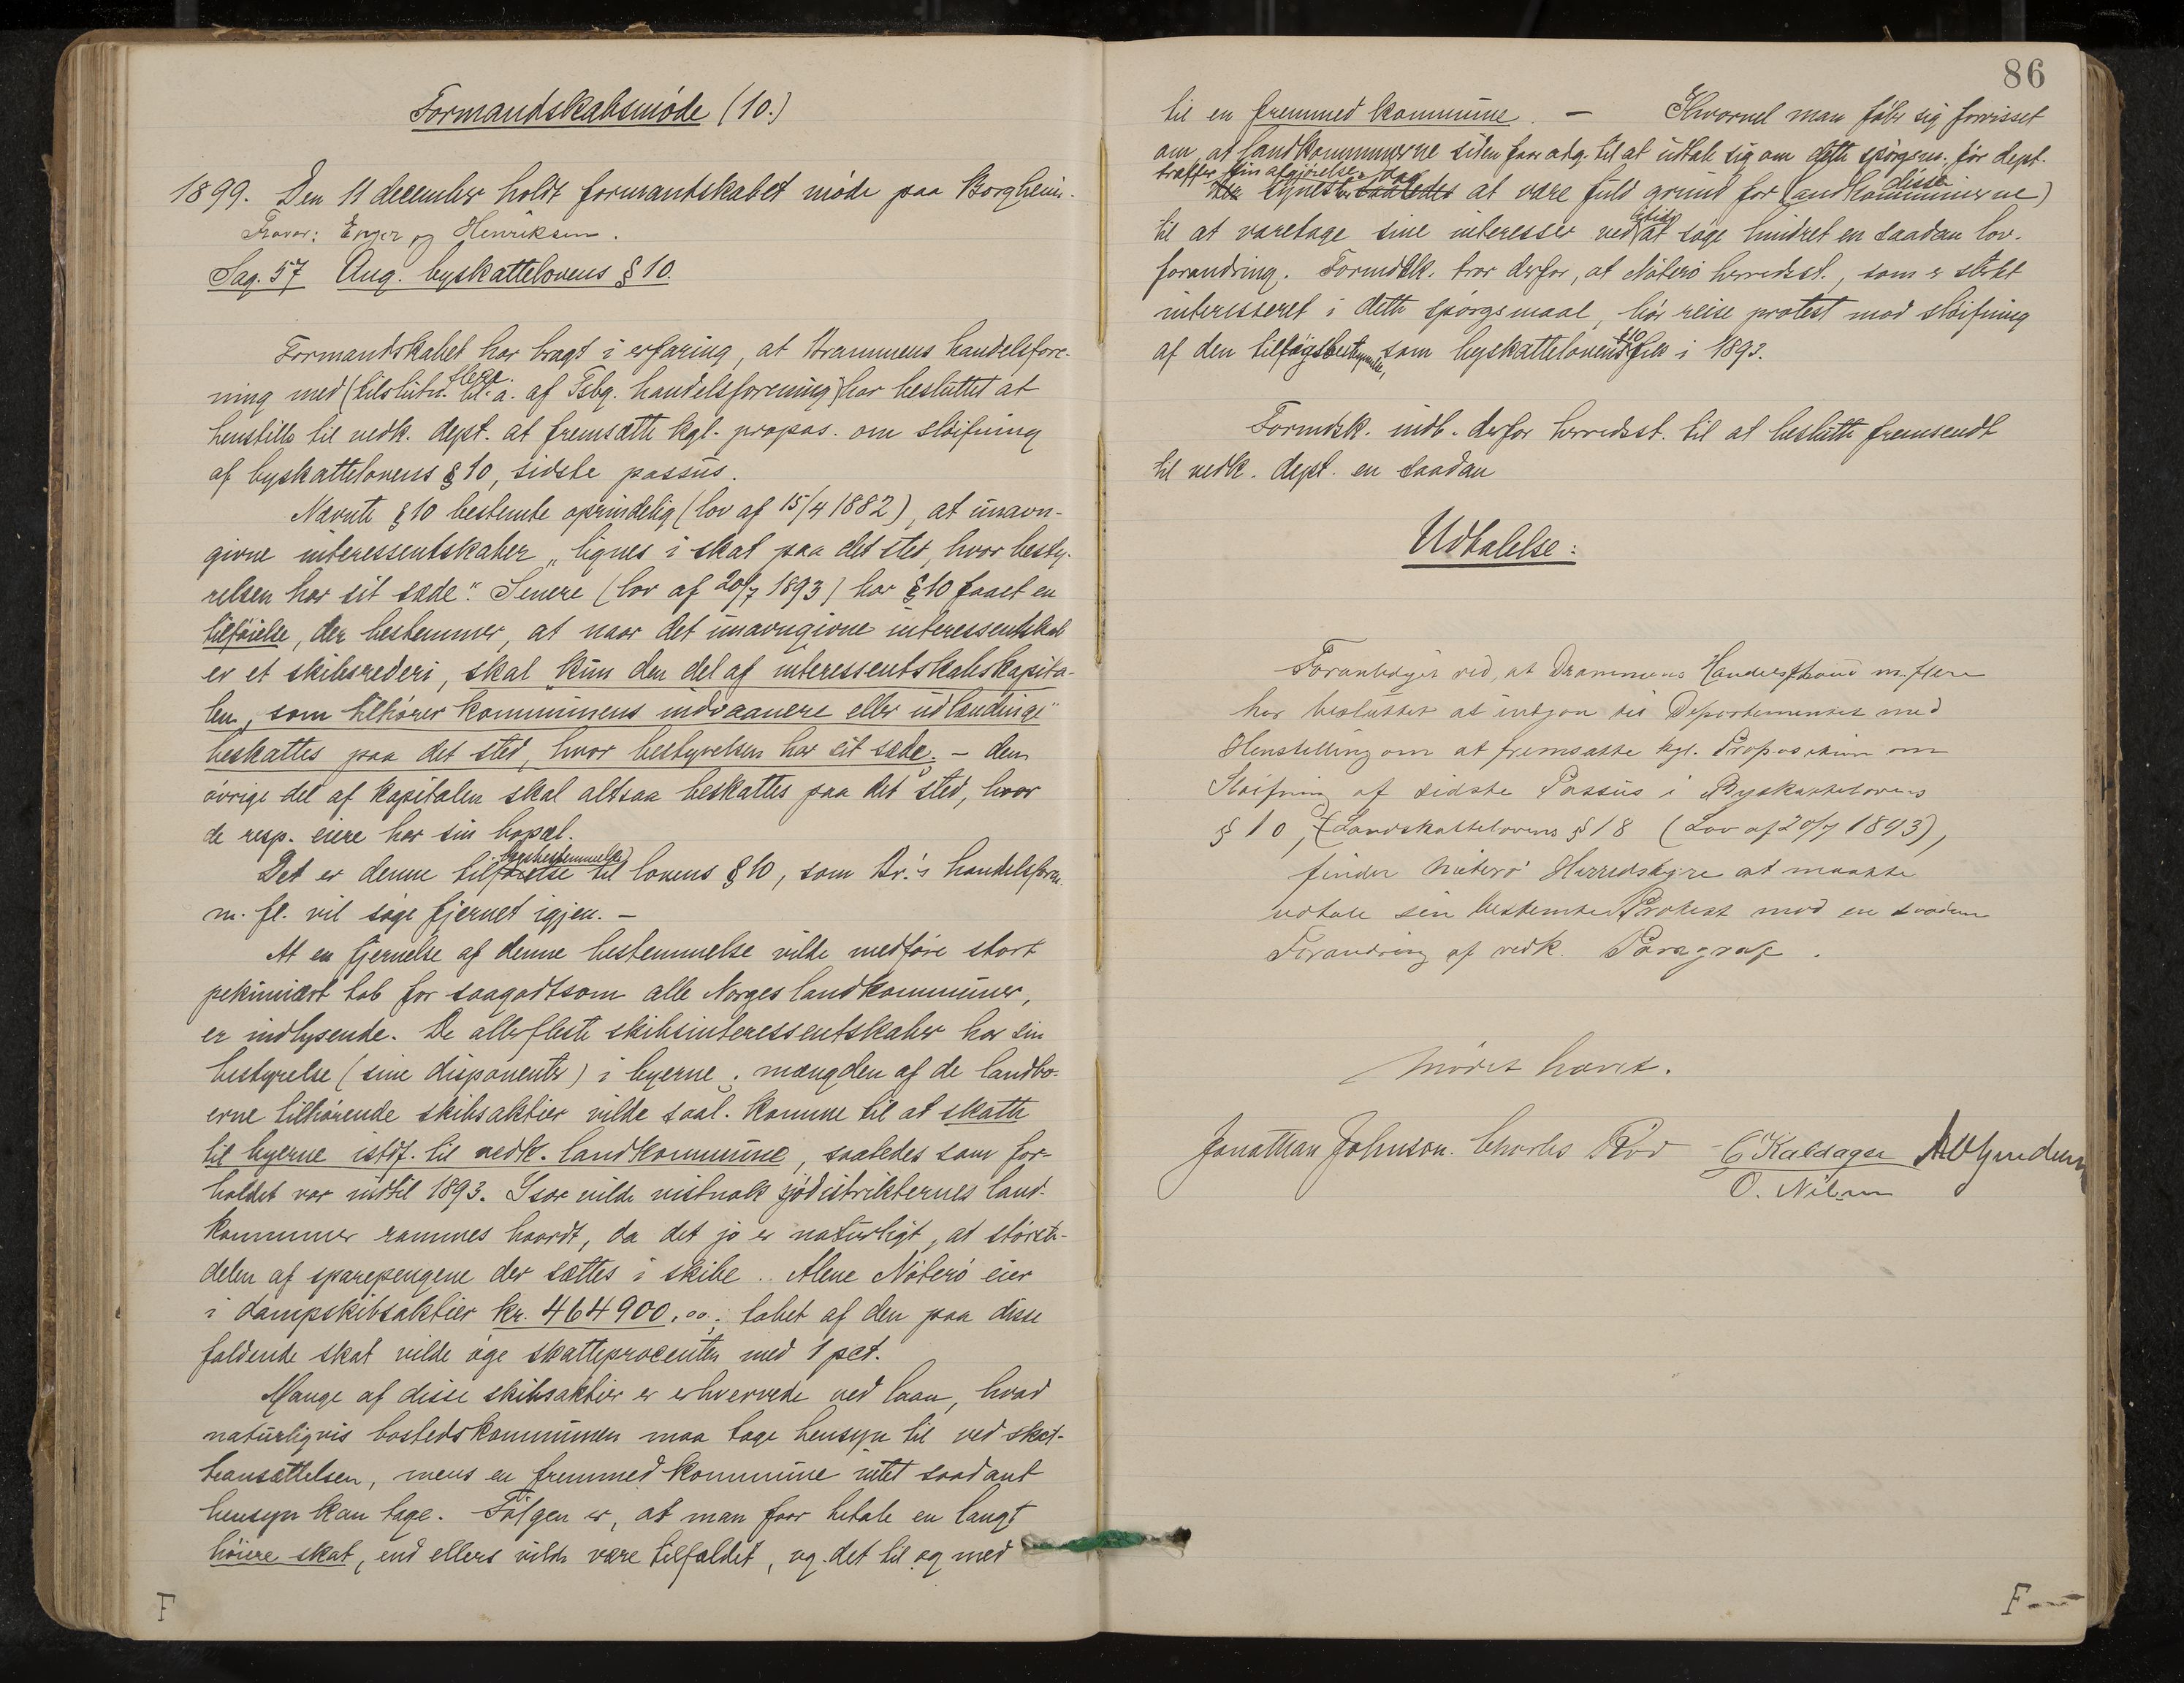 Formandskabsmöde (10.)
1899. Den 11 december holdt formandskabet möde paa Borgheim.
Fravær: Enger og Henriksen.
Sag. 57 Ang. byskattelovens § 10.
Formandskabet har bragt i erfaring, at Drammens handelsfore-
ning med (tilslutn. bl. a. flere. af Tsbg. handelsforening) har besluttet at
henstille til vedk. dept. at fremsætte kgl. propos. om slöifning
af byskattelovens § 10, sidste passus.
Nævnte § 10 bestemte oprindelig (lov af 15/4 1882), at unavn-
givne interessentskaber „lignes i skat paa det sted, hvor besty-
relsen har sit sæde“. Senere (lov af 20/7 1893) har § 10 faaet en
tilföielse, der bestemmer, at naar det unavngivne interessentskab
er et skibsrederi, skal „kun den del af interessentskabskapita-
len, som tilhörer kommunens indvaanere eller udlændinge“
beskattes paa det sted, hvor bestyrelsen har sit sæde; – den
övrige del af kapitalen skal altsaa beskattes paa det sted, hvor
de resp. eiere har sin bopæl.
lægsbestemmelse
Det er denne tilföielse til lovens § 10, som Dr.'s handelsforen.
m. fl. vil söge fjernet igjen. –
At en fjernelse af denne bestemmelse vilde medföre stort
pekuniært tab for saagodtsom alle Norges landkommuner,
er indlysende. De allerfleste skibsinteressentskaber har sin
bestyrelse (sine disponenter) i byerne; mængden af de landbo-
erne tilhörende skibsaktier vilde saal. komme til at skatte
til byerne istdf. til vedk. landkommune, saaledes som for-
holdet var indtil 1893. Især vilde vistnok sjödistrikternes land-
kommuner rammes haardt, da det jo er naturligt, at störste-
delen af sparepengene der sættes i skibe. Alene Nöterö eier
i dampskibsaktier kr. 464900.00; tabet af den paa disse
faldende skat vilde öge skatteprocenten med 1 pct.
Mange af disse skibsaktier er erhvervede ved laan, hvad
naturligvis bostedskommunen maa tage hensyn til ved skat-
teansættelsen, mens en fremmed kommune intet saadant
hensyn kan tage. Fölgen er, at man faar betale en langt
höiere skat, end ellers vilde være tilfældet, og det til og med
F
86
til en fremmed kommune. – Hvorvel man föler sig forvisset
om, at landkommunerne siden faar adg. til at udtale sig om dette spörgsm. för dept.
træffer sin afgjörelse, dog
Der synes der saaledes at være fuld grund for landkommunerne) disse
til at varetage sine interesser ved itide at söge hindret en saadan lov-
forandring. Formdsk. tror derfor, at Nöterö herredsst., som er stærkt
interesseret i dette spörgsmaal, bör reise protest mod slöifning
af den tillægsbestemmelse, som byskattelovens § 10 fik i 1893.
Formdsk. indb. derfor herredsst. til at beslutte fremsendt
til vedk. dept. en saadan
Udtalelse:
Foranlediget ved, at Drammens Handelsstand m. flere
har besluttet at indgaa til Departementet med
Henstilling om at fremsætte kgl. Proposition om
Slöifning af sidste Passus i Byskattelovens
§ 10, (Landskattelovens § 18 (Lov af 20/7 1893),
finder Nöterö Herredstyre at maatte
udtale sin bestemte Protest mod en saadan
Forandring af vedk. Paragraf.
Mödet hævet.
Jonathan Johnson. Charles Röd C Kaldager
O. Nilsen
F